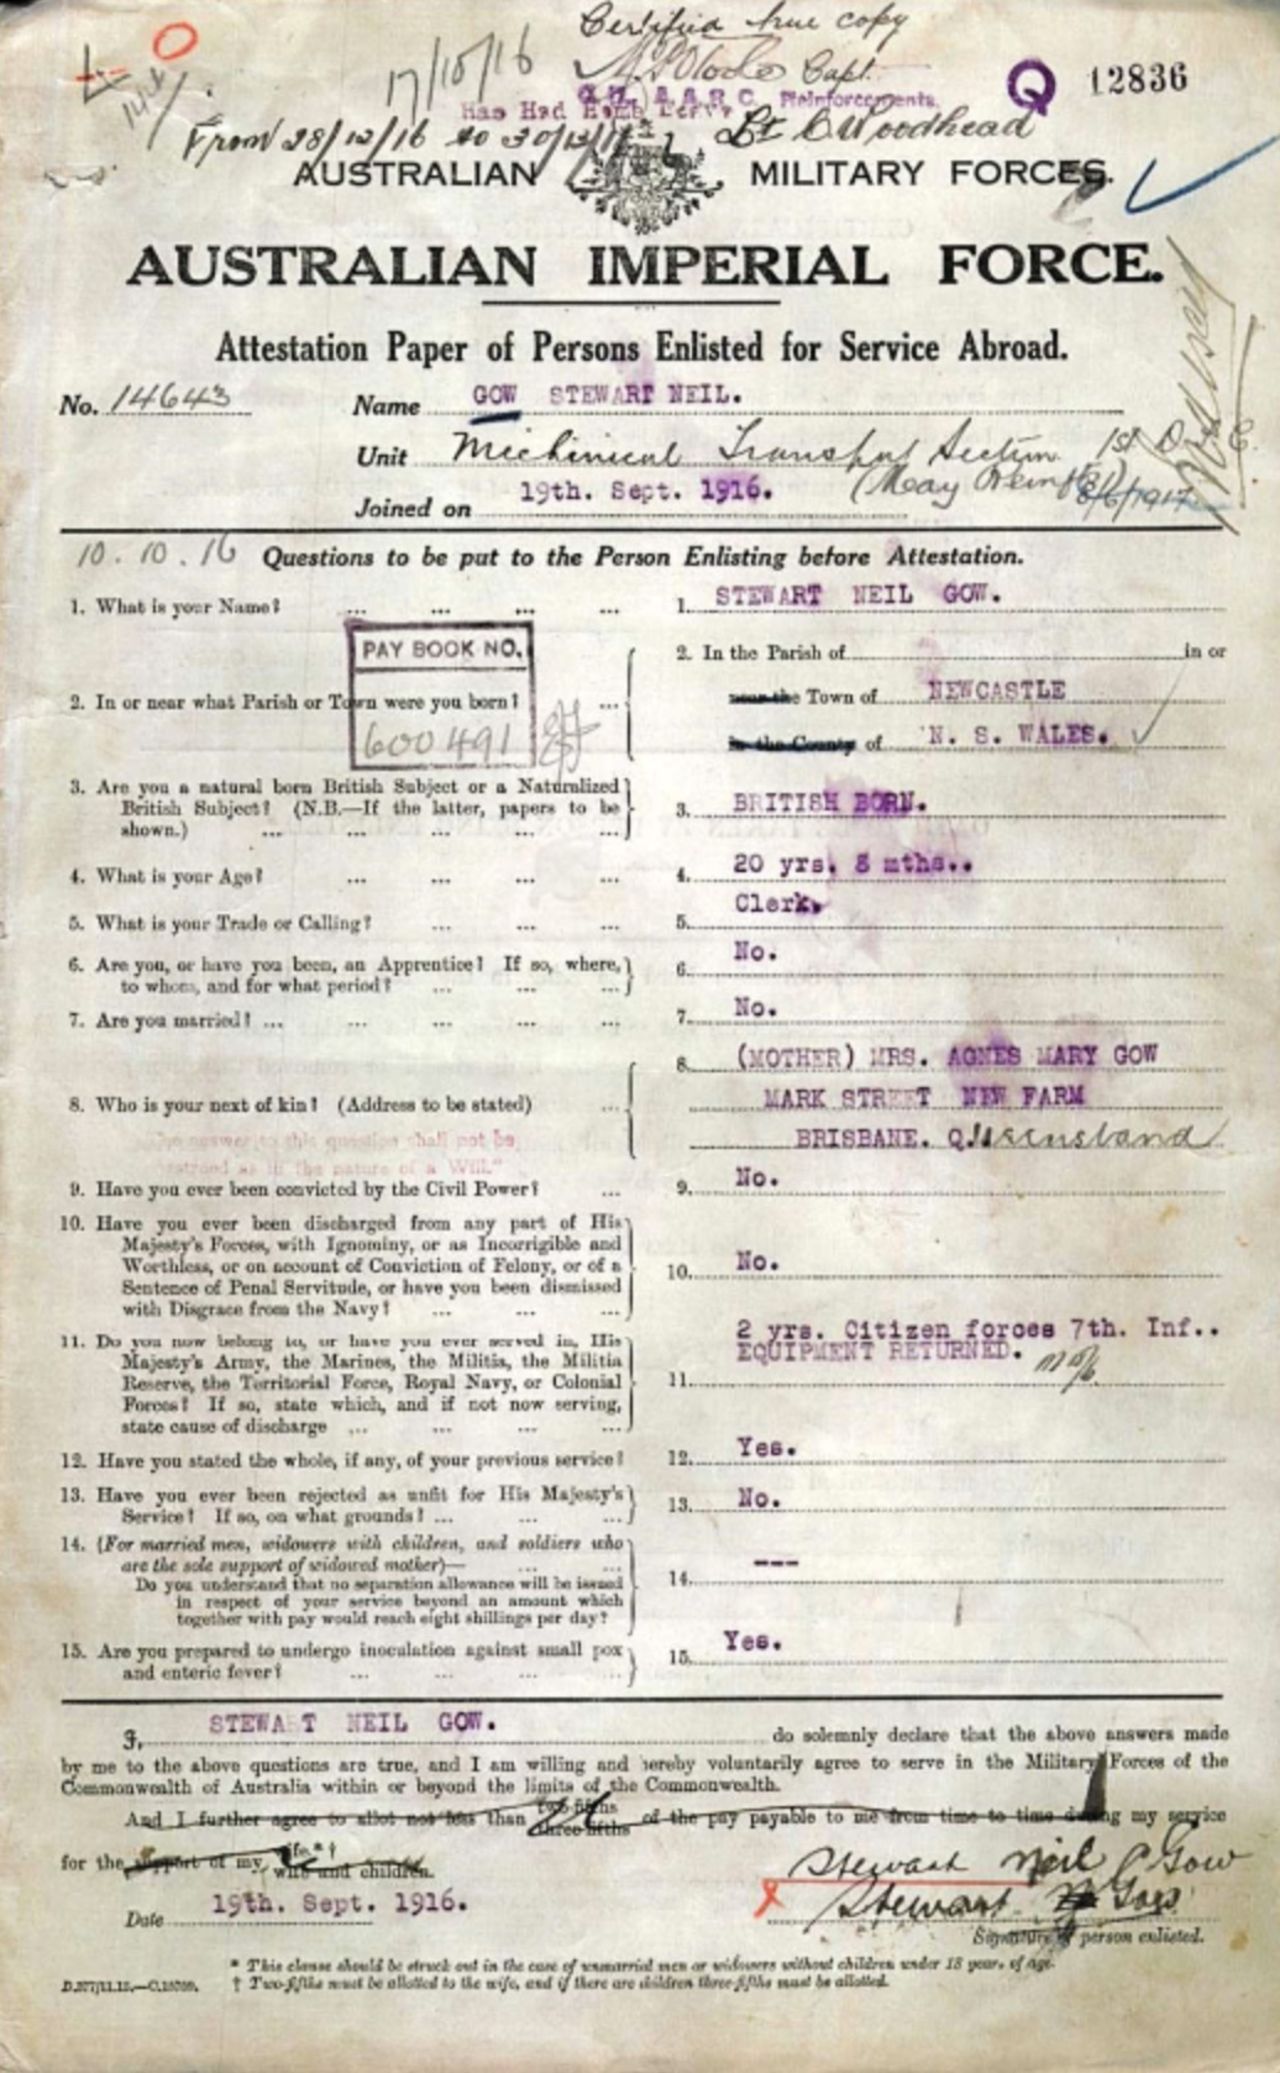 Certified true copy
Capt.
17/10/16
Q 12836
Has Had Home Leave
A.A.R.C. Reinforcements.
From 28/12/16 to 30/12/16
Lt C Woodhead
AUSTRALIAN MILITARY FORCES.
AUSTRALIAN IMPERIAL FORCE.
Attestation Paper of Persons Enlisted for Service Abroad.
No. 14643 Name GOW STEWART NEIL.
Unit Mechinical Transport Section
(May Reinf
8/6/1917
Joined on 19th. Sept. 1916.
10.10.16 Questions to be put to the Person Enlisting before Attestation.
1. What is your Name? ... ... ... ... 1. STEWART NEIL GOW.
PAY BOOK NO.
600491
2. In or near what Parish or Town were you born? ... 2. In the Parish of in or
near the Town of NEWCASTLE
in the County of N. S. WALES.
3. Are you a natural born British Subject or a Naturalized
British Subject? (N.B.—If the latter, papers to be
shown.) ... ... ... ... ... 3. BRITISH BORN.
4. What is your Age? ... ... ... ... 4. 20 yrs. 8 mths..
5. What is your Trade or Calling? ... ... ... 5. Clerk.
6. Are you, or have you been, an Apprentice? If so, where,
to whom, and for what period? ... ... ... 6. No.
7. Are you married? ... ... ... ... 7. No.
8. Who is your next of kin? (Address to be stated) ... 8. (MOTHER) MRS. AGNES MARY GOW
MARK STREET NEW FARM
BRISBANE. Queensland
answer to this question shall not be
as in the nature of a Will."
9. Have you ever been convicted by the Civil Power? ... 9. No.
10. Have you ever been discharged from any part of His
Majesty's Forces, with Ignominy, or as Incorrigible and
Worthless, or on account of Conviction of Felony, or of a
Sentence of Penal Servitude, or have you been dismissed
with Disgrace from the Navy? ... ... ... 10. No.
11. Do you now belong to, or have you ever served in, His
Majesty's Army, the Marines, the Militia, the Militia
Reserve, the Territorial Force, Royal Navy, or Colonial
Forces? If so, state which, and if not now serving,
state cause of discharge ... ... ... ... 11. 2 yrs. Citizen forces 7th. Inf..
EQUIPMENT RETURNED.
12. Have you stated the whole, if any, of your previous service? 12. Yes.
13. Have you ever been rejected as unfit for His Majesty's
Service? If so, on what grounds? ... ... ... 13. No.
14. (For married men, widowers with children, and soldiers who
are the sole support of widowed mother)— ... ...
Do you understand that no separation allowance will be issued
in respect of your service beyond an amount which
together with pay would reach eight shillings per day? 14. ---
15. Are you prepared to undergo inoculation against small pox
and enteric fever? ... ... ... ... 15. Yes.
I, STEWART NEIL GOW. do solemnly declare that the above answers made
by me to the above questions are true, and I am willing and hereby voluntarily agree to serve in the Military Forces of the
Commonwealth of Australia within or beyond the limits of the Commonwealth.
And I further agree to allot not less than two-fifths three-fifths of the pay payable to me from time to time during my service
for the support of my wife.*† wife and children.
Stewart Neil Gow
Stewart N Gow
Date 19th. Sept. 1916.
Signature of person enlisted.
* This clause should be struck out in the case of unmarried men or widowers without children under 18 years of age.
† Two-fifths must be allotted to the wife, and if there are children three-fifths must be allotted.